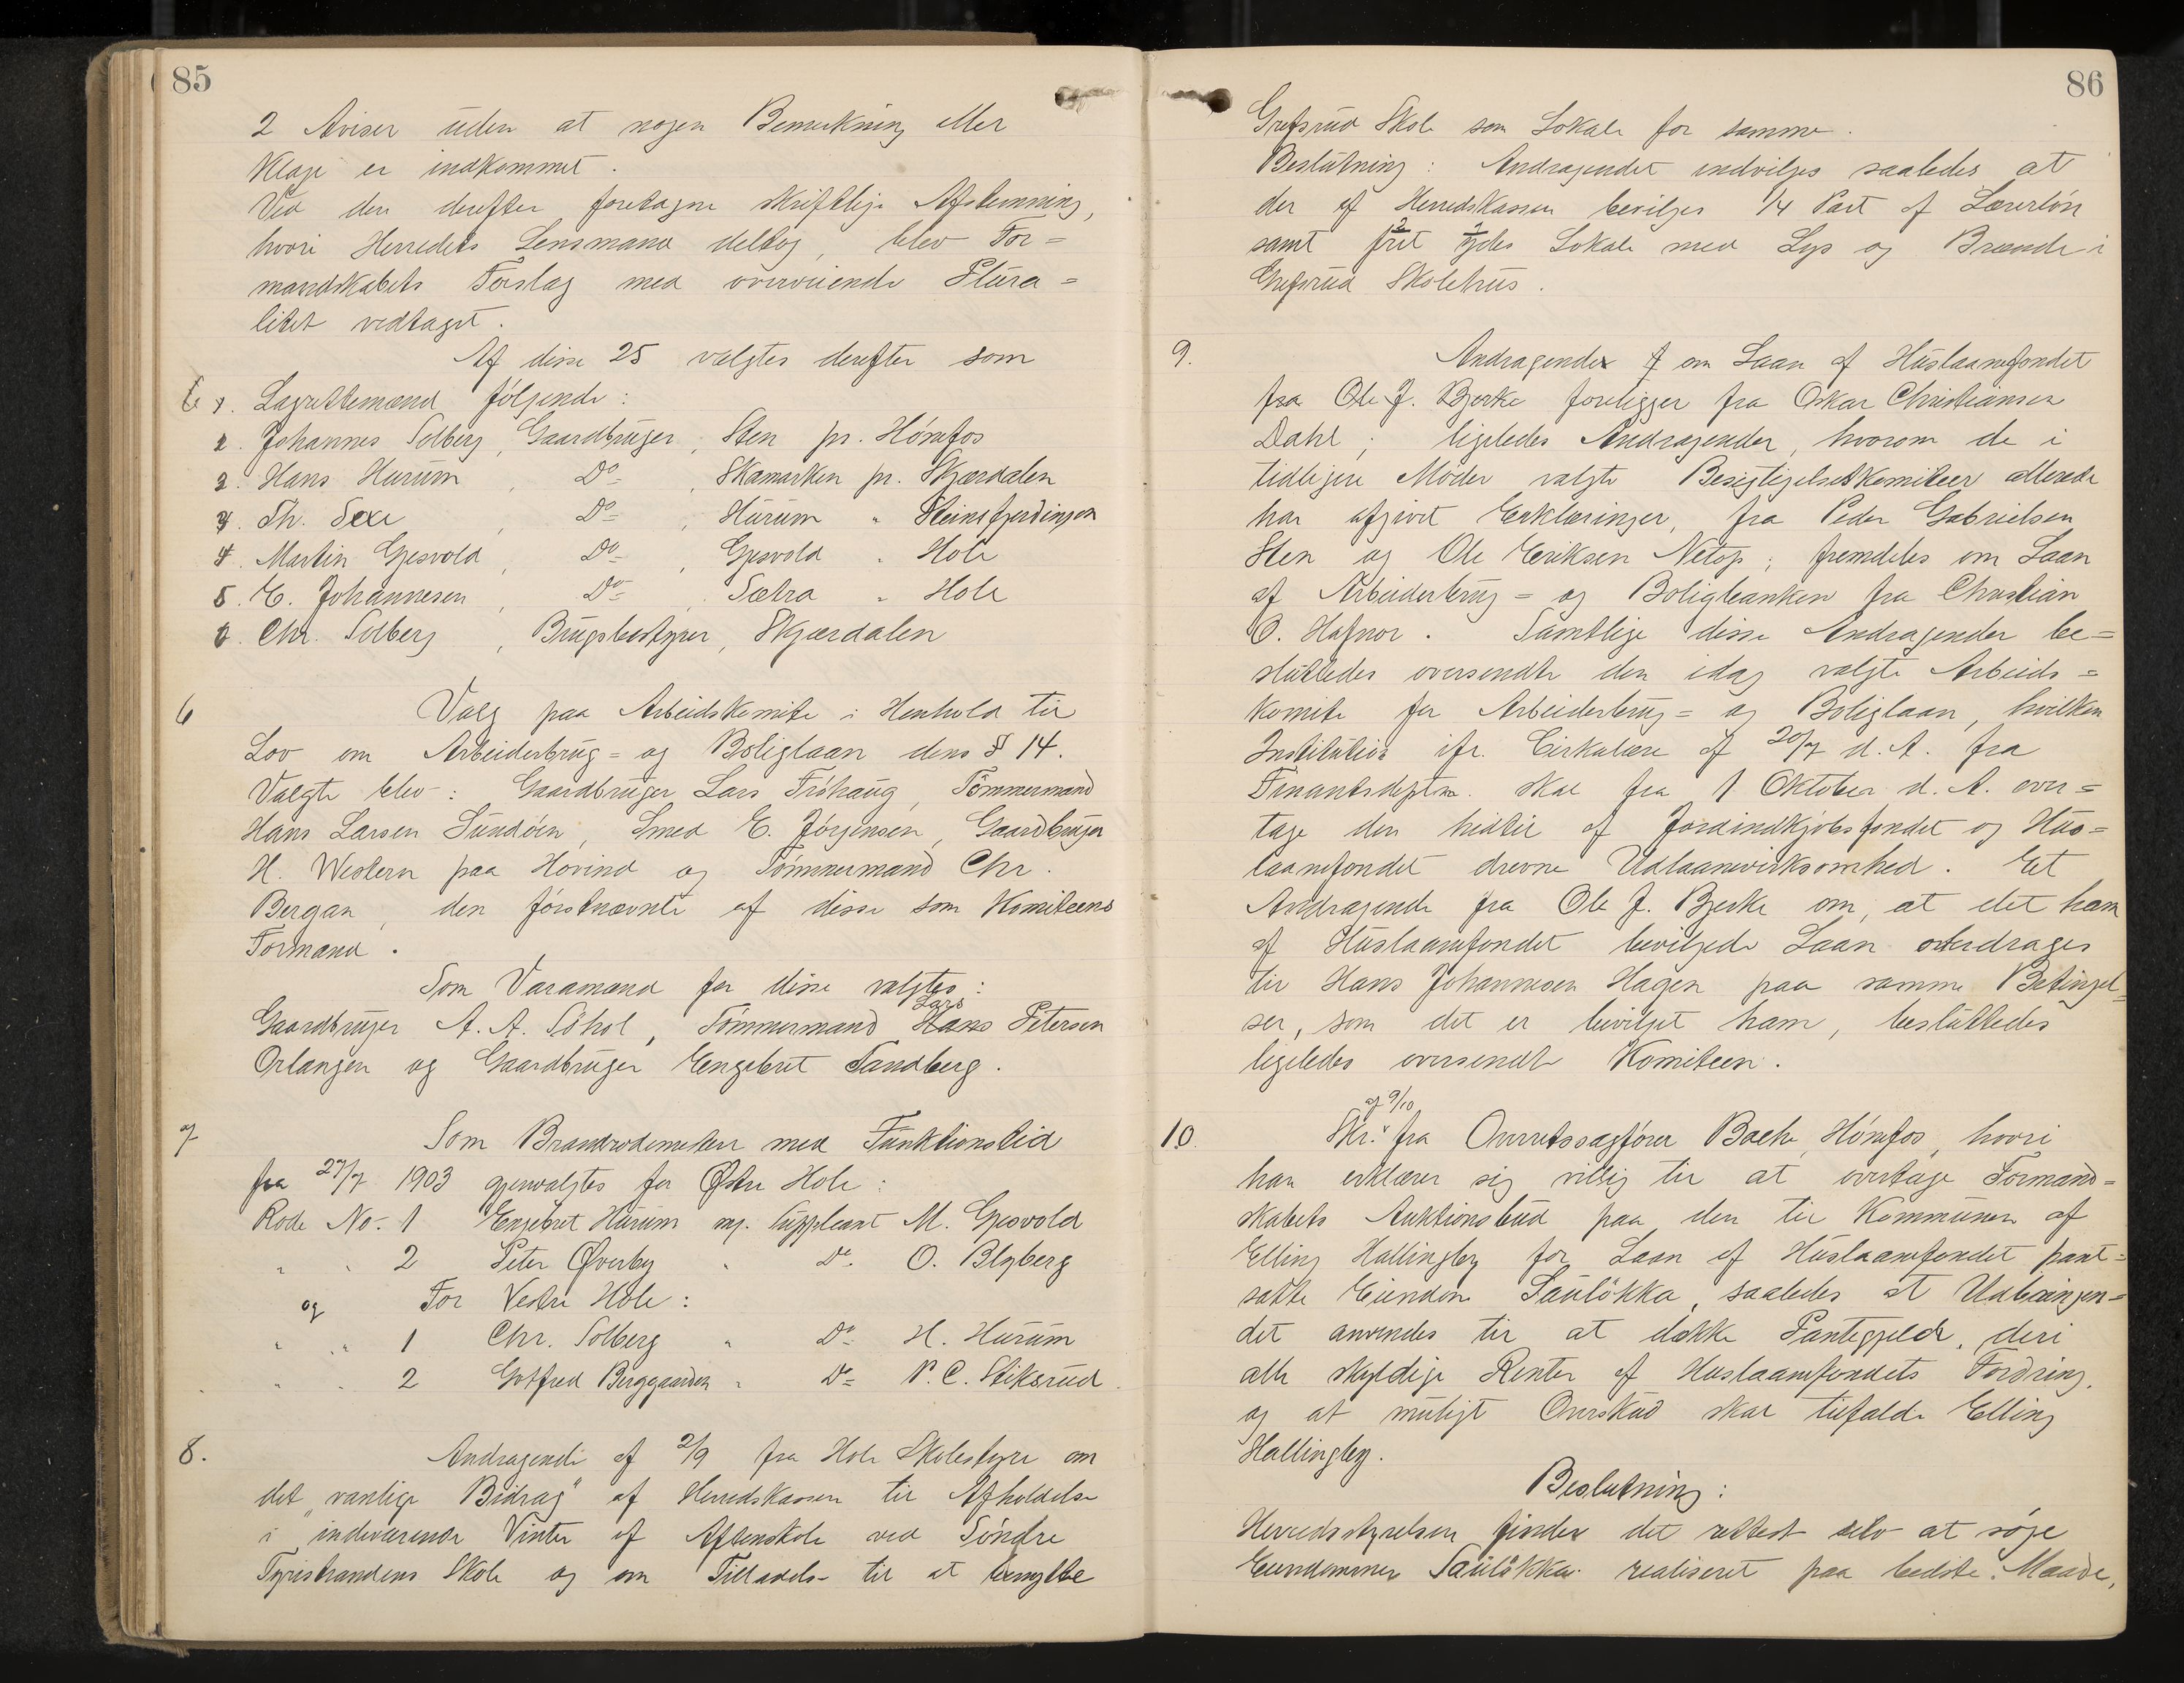 85
2 Aviser uden at nogen Bemerkning eller
Klage er indkommet.
Ved den derefter foretagne skriftlige Afstemning,
hvori Herredets Lensmand deltog, blev For=
mandskabets Forslag med overveiende Plura=
litet vedtaget.
Af disse 25 valgtes derefter som
Lagrettemænd følgende:
Johannes Solberg, Gaardbruger, Sten pr. Hønefos
2. Hans Hurum, Do, Skamarken pr. Skjærdalen
Th. Sexe, Do, Hurum " Steinsfjerdingen
4. Martin Gjesvold, Do, Gjesvold " Hole
5. E. Johannesen, Do, Sætra " Hole
6. Chr. Solberg, Brugsbestyrer, Skjærdalen
6 Valg paa Arbeidskomite i Henhold til
Lov om Arbeiderbrug= og Boliglaan dens § 14.
Valgte blev: Gaardbruger Lars Frøhaug, Tømmermand
Hans Larsen Sundøen, Smed E. Jørgensen, Gaardbruger
H. Western paa Hovind og Tømmermand Chr.
Bergan, den førstnævnte af disse som Komiteens
Formand.
Som Varamænd for disse valgtes:
Gaardbruger A. A. Søhol, Tømmermand Lars Petersen
Orlangen og Gaardbruger Engebret Sandberg.
7 Som Brandrodemestere med Funktionstid
fra 27/7 1903 gjenvalgtes for Østre Hole:
Rode No. 1 Engebret Hurum mg. Suppleant M. Gjesvold
" " 2 Peter Øverby " Do. O. Blyberg
og For Vestre Hole:
" " 1 Chr. Solberg " Do H. Hurum
" " 2 Gotfred Berggaarden " Do P. C. Stiksrud.
8. Andragende af 2/9 fra Hole Skolestyre om
det "vanlige Bidrag" af Herredskassen til Afholdelse
i indeværende Vinter af Aftenskole ved Søndre
Tyristrandens Skole og om Tilladelse til at benytte
86
Grefsrud Skole som Lokale for samme.
Beslutning: Andragendet indvilges saaledes at
der af Herredskassen bevilges 1/4 Part af Lærerløn
samt frit ydes Lokale med Lys og Brænde i
Grefsrud Skolehus.
9. Andragende om Laan af Huslaanefondet
fra Ole J. Bjerke foreligger fra Oskar Christiansen
Dahl; ligeledes Andragender, hvorom de i
tidligere Møder valgte Besigtigelseskomiteer allerede
har afgivet Erklæringer, fra Peder Gabrielsen
Sten og Ole Eriksen Netop; fremdeles om Laan
af Arbeiderbrug= og Boligbanken fra Christian
O. Hafnor. Samtlige disse Andragender be=
sluttedes oversendte den idag valgte Arbeids=
komite for Arbeiderbrug= og Boliglaan, hvilken
Institution ifr. Cirkulære af 20/7 d. A. fra
Finantsdeptm. skal fra 1 Oktober d. A. over=
tage den hidtil af Jordindkjøbsfondet og Hus=
laanefondet drevne Udlaansvirksomhed. Et
Andragende fra Ole J. Bjerke om, at det ham
af Huslaanefondet bevilgede Laan overdrages
til Hans Johannesen Hagen paa samme Betingel=
ser, som det er bevilget ham, besluttedes
ligeledes oversendt Komiteen.
10. Skr. af 9/10 fra Overretssagfører Bache, Hønefos, hvori
han erklærer sig villig til at overtage Formand=
skabets Auktionsbud paa den til Kommunen af
Elling Hallingby for Laan af Huslaanefondet pant=
satte Eiendom Sauløkka, saaledes at Udbringen=
det anvendes til at dække Pantegjeld, deri
alle skyldige Renter af Huslaanefondets Fordring,
og at muligt Overskud skal tilfalde Elling
Hallingby.
Beslutning:
Herredsstyrelsen finder det rettest selv at søge
Eiendommen Sauløkka realiseret paa bedste Maade,